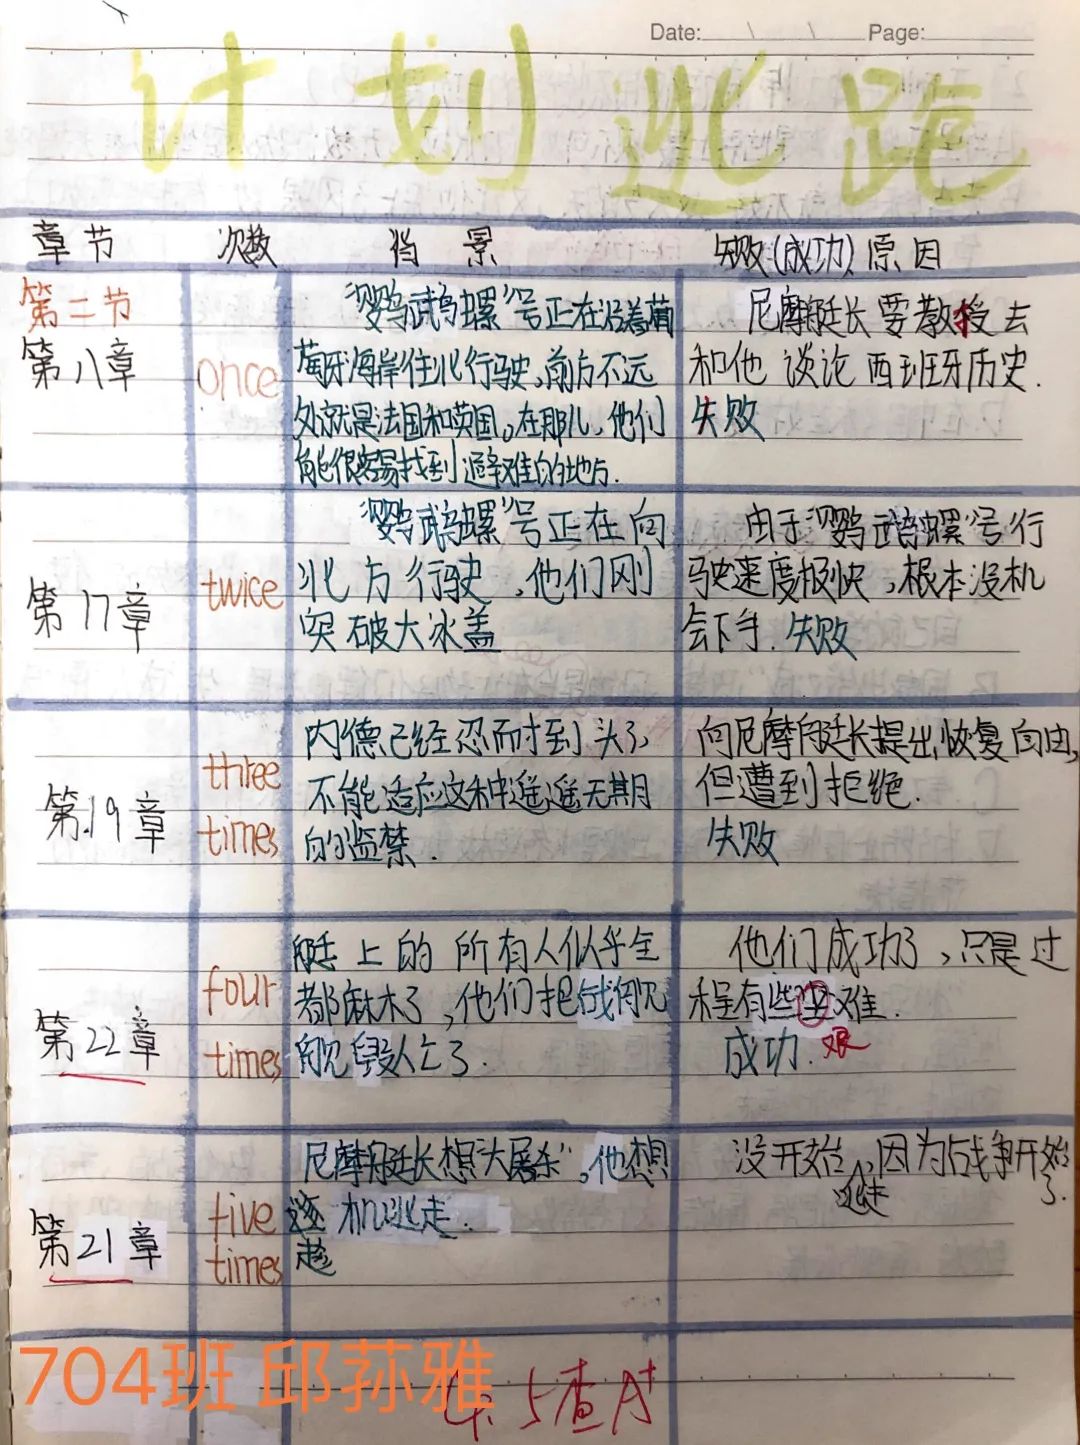 Date: / / Page:
计划逃跑
章节 次数 背景 失败(成功)原因
第二节
第八章
once
“鹦鹉螺”号正在沿着葡
萄牙海岸往北行驶,前方不远
处就是法国和英国。在那儿,他们
能很容易找到避难的地方.
尼摩艇长要教授去
和他谈论西班牙历史.
失败
第17章
twice
“鹦鹉螺”号正在向
北方行驶,他们刚
突破大冰盖
由于“鹦鹉螺”号行
驶速度极快,根本没机
会下手.失败
第19章
three
times
内德已经忍耐到头了
不能适应这种遥遥无期
的监禁.
向尼摩艇长提出恢复自由,
但遭到拒绝.
失败
第22章
four
times
艇上的所有人似乎全
都麻木了,他们把战舰
舰毁人亡了.
他们成功了,只是过
程有些坚难.
艰
成功.
第21章
five
times
尼摩艇长想“大屠杀”,他想
逐机逃走.
趁
没开始,因为战争开始
逃走
了.
704班 邱荪雅
4.5查A+